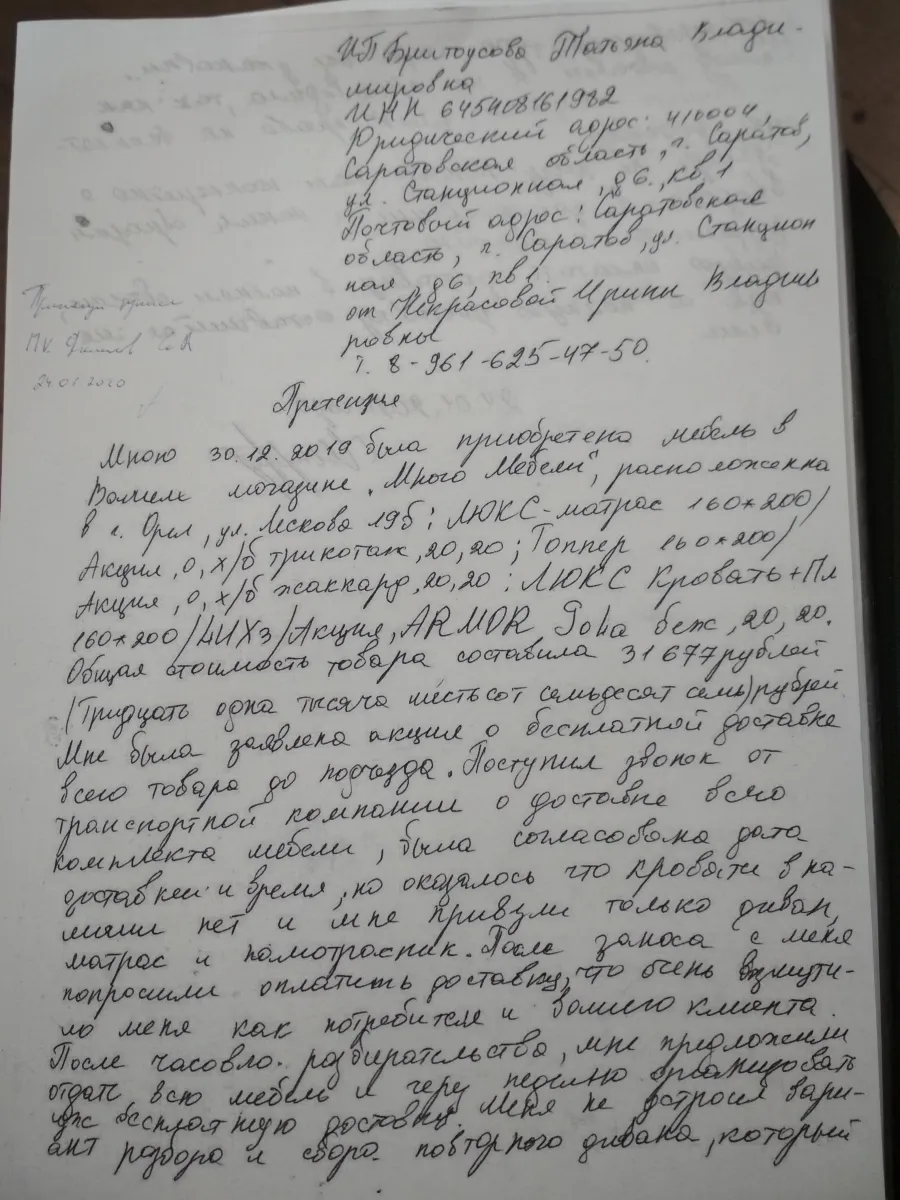 ИП Бритоусова Татьяна Влади-
мировна
ИНН 645408161982
Юридический адрес: 410004,
Саратовская область, г. Саратов,
ул. Станционная, д 6., кв 1
Почтовый адрес: Саратовская
область, г. Саратов, ул. Станцион
ная, д6, кв 1
от Некрасовой Ирины Владими
ровны
т. 8-961-625-47-50.
24 01 2020
Претензия
Мною 30.12.2019 была приобретена мебель в
Вашем магазине „Много Мебели", расположенна
в г. Орел, ул. Лескова 19б: ЛЮКС-матрас 160*200/
Акция, 0, х/б трикотаж, 20, 20; Топпер 160*200/
Акция, 0, х/б жаккард, 20, 20; ЛЮКС Кровать+Пл
160*200/ /Акция, ARMOR беж, 20, 20.
Общая стоимость товара составила 31677 рублей
(Тридцать одна тысяча шестьсот семьдесят семь) рублей
Мне была заявлена акция о бесплатной доставке
всего товара до подъезда. Поступил звонок от
транспортной компании о доставке всего
комплекта мебели, была согласована дата
доставки и время, но оказалось что кровати в на-
личии нет и мне привзли только диван,
матрас и наматрасник. После заноса с меня
попросили оплатить доставку, что очень взмути-
ло меня как потребителя и Вашего клиента.
После часовло. разбирательства, мне предложили
отдать всю мебель и через неделю организовать
уже бесплатную доставку. Меня не устроил вари-
ант разбора и сбора повторного дивана, который